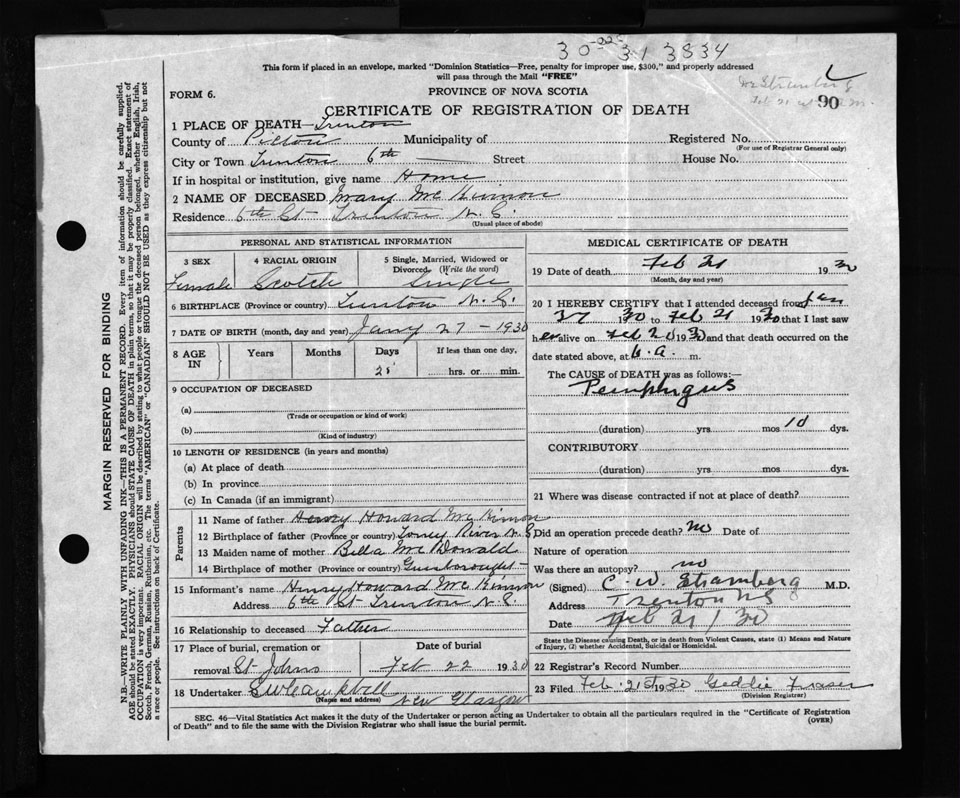 30-025 313834
This form if placed in an envelope, marked "Dominion Statistics—Free, penalty for improper use, $300," and properly addressed
will pass through the Mail "FREE"
FORM 6.
PROVINCE OF NOVA SCOTIA
90
CERTIFICATE OF REGISTRATION OF DEATH
1 PLACE OF DEATH—Trenton
County of Pictou Municipality of Registered No.
(For use of Registrar General only)
City or Town Trenton 6th Street House No.
If in hospital or institution, give name Home
2 NAME OF DECEASED Mary Mc Kinnon
Residence 6th St- Trenton N.S.
(Usual place of abode)
PERSONAL AND STATISTICAL INFORMATION
3 SEX 4 RACIAL ORIGIN 5 Single, Married, Widowed or
Divorced (Write the word)
Female Scotch Single
6 BIRTHPLACE (Province or country) Trenton N.S.
7 DATE OF BIRTH (month, day and year) Jany 27-1930
8 AGE IN Years Months Days If less than one day,
25 hrs. or min.
9 OCCUPATION OF DECEASED
(a)
(Trade or occupation or kind of work)
(b)
(Kind of industry)
10 LENGTH OF RESIDENCE (in years and months)
(a) At place of death
(b) In province
(c) In Canada (if an immigrant)
Parents
11 Name of father Henry Howard Mc Kinnon
12 Birthplace of father (Province or country) River N.S
13 Maiden name of mother Bella Mc Donald
14 Birthplace of mother (Province or country)
15 Informant's name Henry Howard Mc Kinnon
Address 6th St- Trenton N.S.
16 Relationship to deceased Father
17 Place of burial, cremation or Date of burial
removal St Johns Feb 22 1930
18 Undertaker
(Name and address) New Glasgow
MEDICAL CERTIFICATE OF DEATH
19 Date of death Feb 21 1930
(Month, day and year)
20 I HEREBY CERTIFY that I attended deceased from Jan
1930 to Feb 21 1930 that I last saw
her alive on Feb 20 1930 and that death occurred on the
date stated above, at 6 a. m.
The CAUSE OF DEATH was as follows:—
Pemphigus
(duration) yrs mos 10 dys.
CONTRIBUTORY
(duration) yrs. mos. dys.
21 Where was disease contracted if not at place of death?
Did an operation precede death? No Date of
Nature of operation
Was there an autopsy? no
(Signed) C. W. Stramberg M.D.
Address Trenton NS
Date Feb 21/30
State the Disease causing Death, or in death from Violent Causes, state (1) Means and Nature
of Injury, (2) whether Accidental, Suicidal or Homicidal.
22 Registrar's Record Number
23 Filed Feb. 21st 1930 Geddie Fraser
(Division Registrar)
SEC. 46—Vital Statistics Act makes it the duty of the Undertaker or person acting as Undertaker to obtain all the particulars required in the "Certificate of Registration
of Death" and to file the same with the Division Registrar who shall issue the burial permit. (OVER)
MARGIN RESERVED FOR BINDING
N.B.—WRITE PLAINLY WITH UNFADING INK—THIS IS A PERMANENT RECORD. Every item of information should be carefully supplied.
AGE should be stated EXACTLY. PHYSICIANS should STATE CAUSE OF DEATH in plain terms, so that it may be properly classified. Exact statement of
OCCUPATION is very important. RACIAL ORIGIN will be described by stating to what people or tongue the deceased person belonged, whether English, Irish,
Scotch, French, German, Russian, Ruthenian, etc. The terms "AMERICAN" or "CANADIAN" SHOULD NOT BE USED as they express citizenship but not
a race or people. See instructions on back of Certificate.